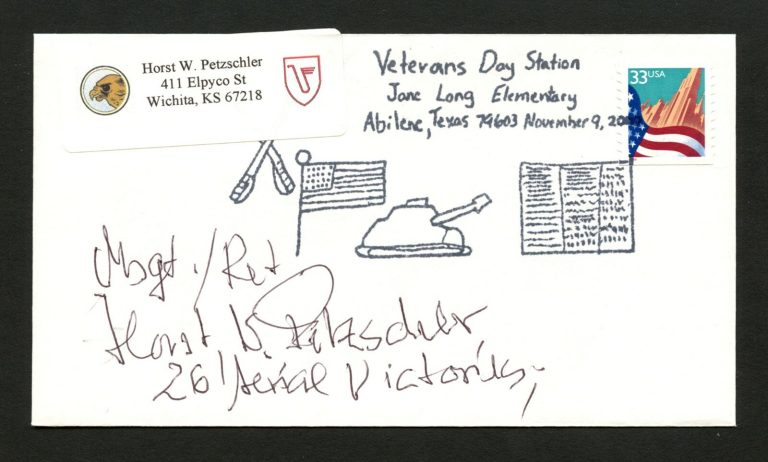 Horst W. Petzschler
411 Elpyco St
Wichita, KS 67218
Veterans Day Station
Jane Long Elementary
Abilene, Texas 79603 November 9,
33USA
Msgt./Ret
Horst W. Petzschler,
26 Aerial Victories,